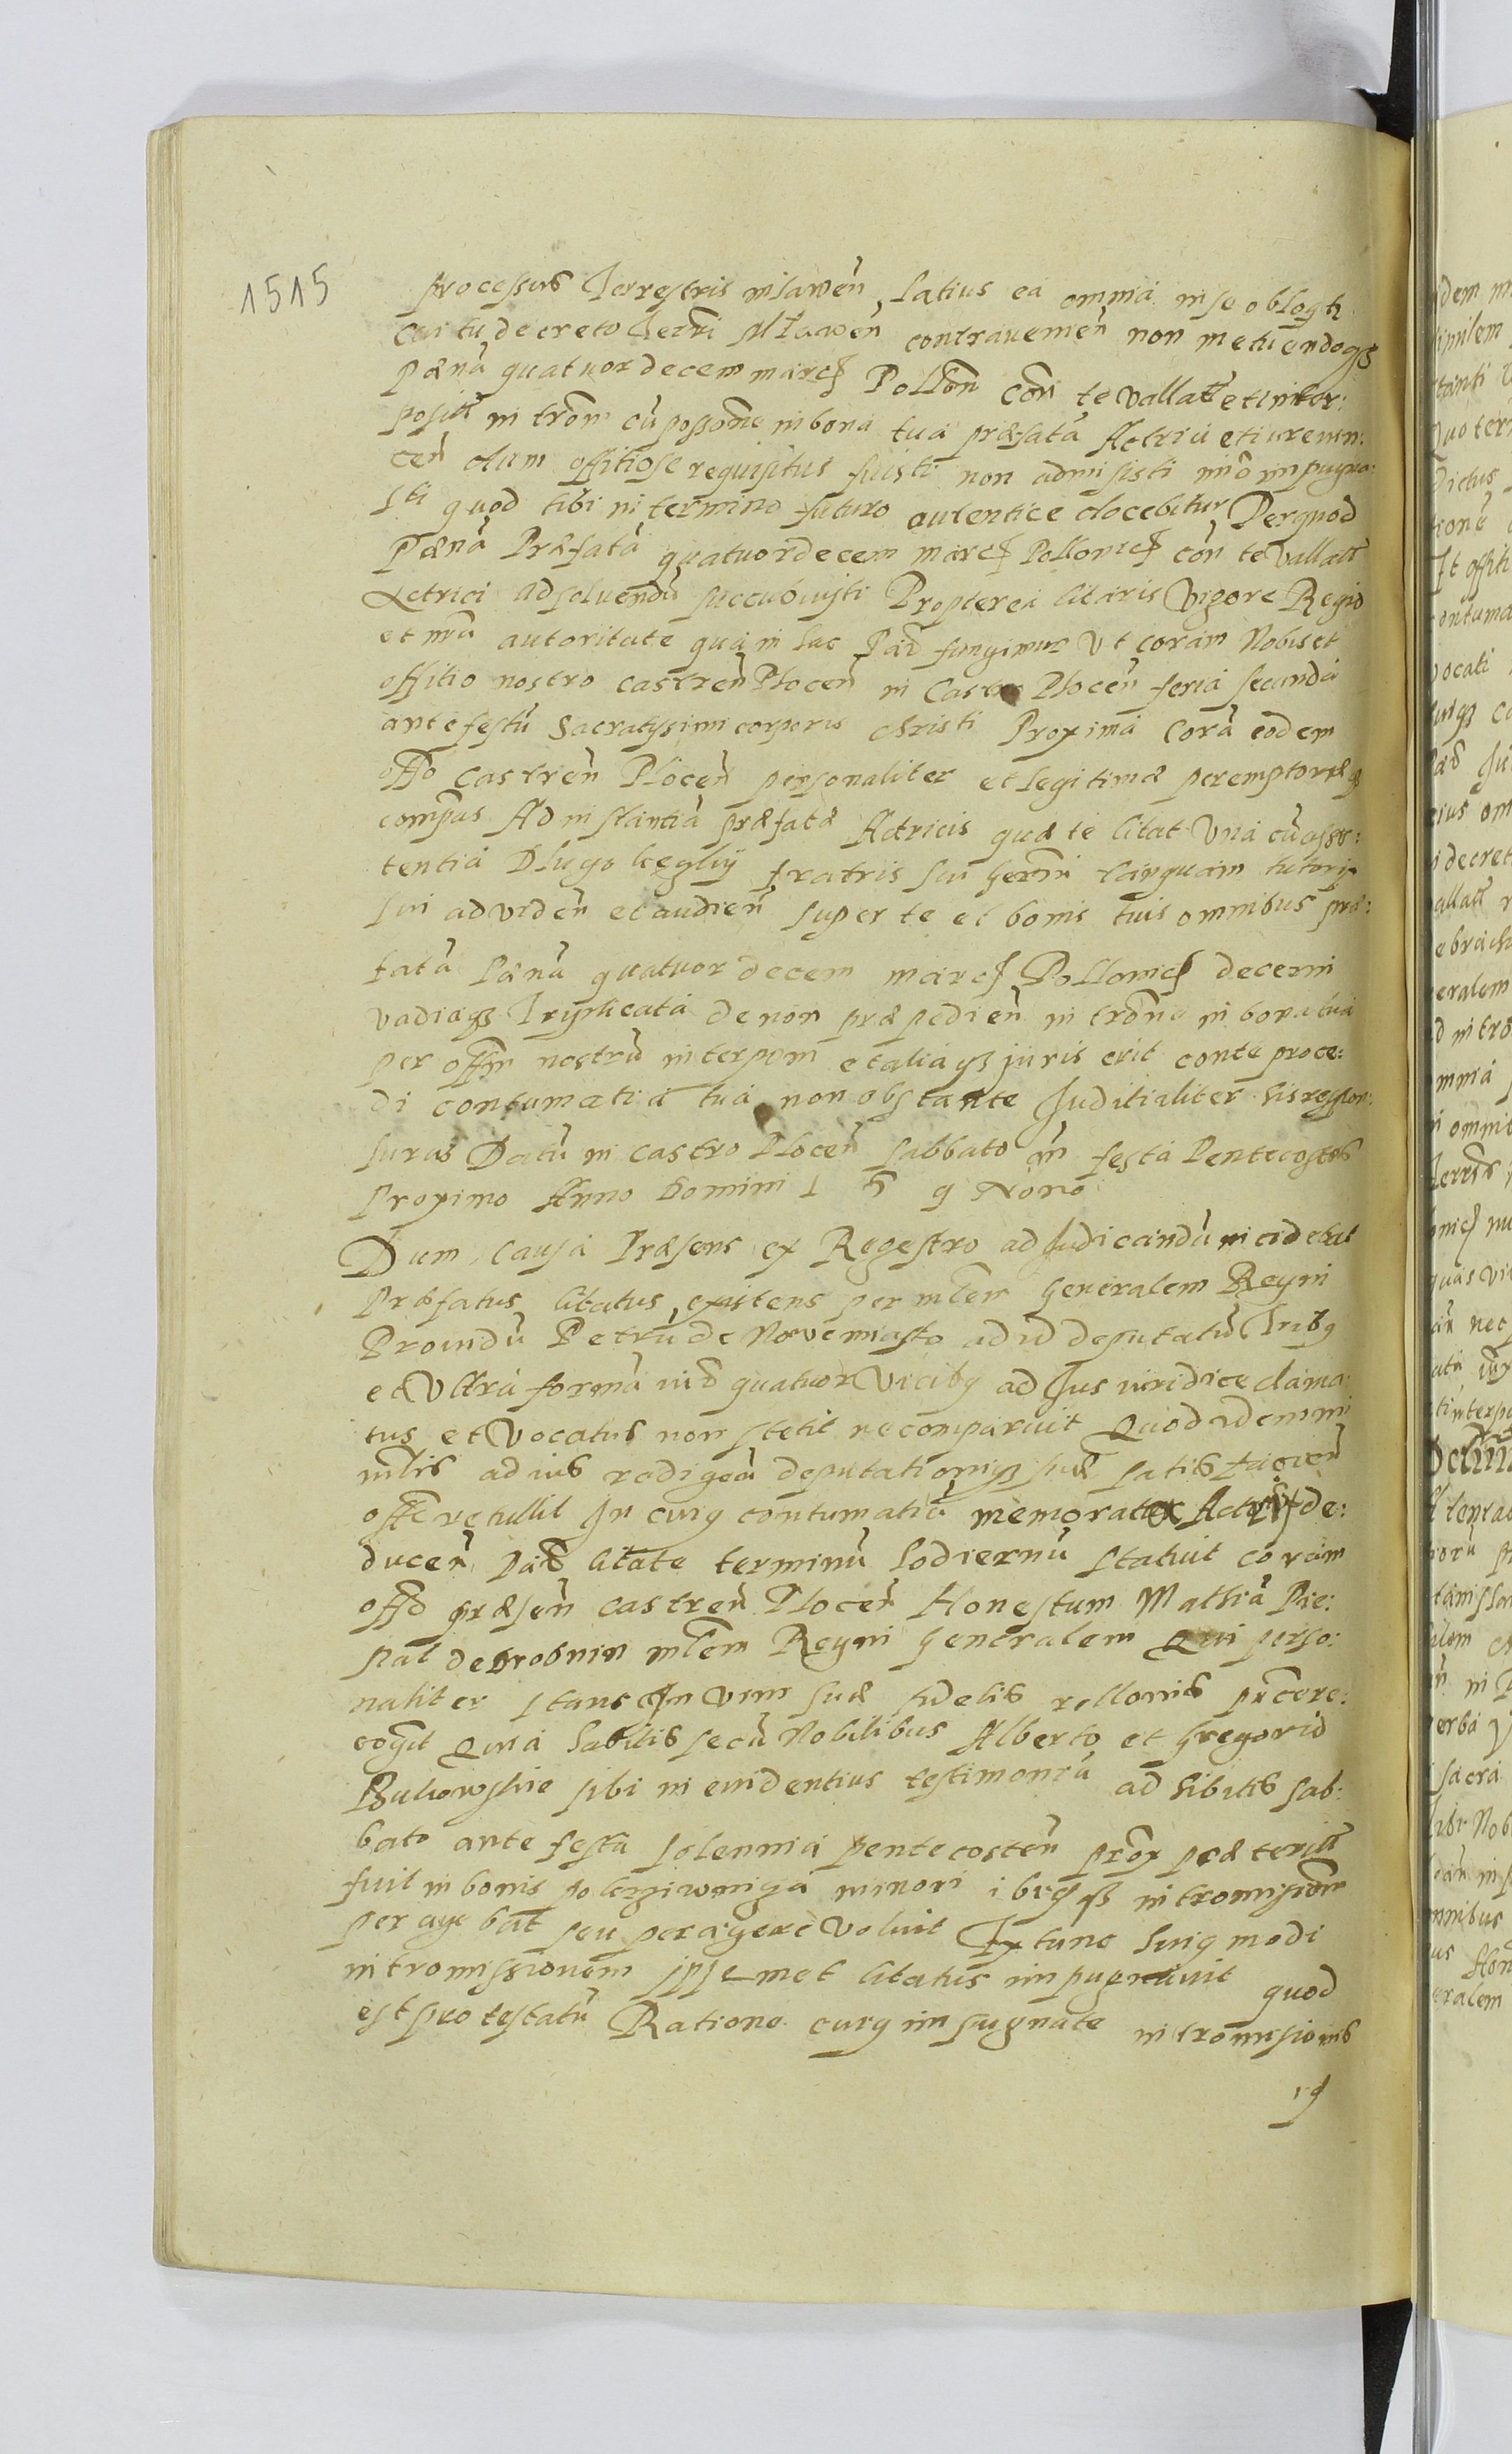 1515
processus Terrestris mlawen̄ latius ea omnia in se
cui tu decreto Terri Mławen̄ contravenien̄ non metuendoqз
pænā quatuordecem marc Pollon̄ con̄ te vallat et inter:
posit in tron̄ cū possone in bona tua præfata Actricē et iurevin:
cen̄ dum offitiose requisitus fuisti non admisisti imo impugna:
sti quod tibi in termino futuro autentice docebitur Per quod
Pænā Præfatā quatuordecem marc Pollonic con̄ te vallat
Actrici ad solvendū succubuisti Propterea citaris Vigore Regio
et nr̄a autoritate qua in hac Par̄ fungimur Ut coram Nobis et
offitio nostro castren̄ Plocen̄ in Castro Plocen̄ feria secunda
ante festū Sacratissimi corporis christi Proxima Corā eodem
offo castren̄ Plocen̄ personaliter et legitimæ peremptoriæqз
compas Ad instantiā præfatæ Actricis quæ te citat Unā cū assis:
tentia Dlugo fratris sui Germi tanquam tutoris
sui ad viden̄ et audien̄ super te et bonis tuis omnibus præ:
fatā Pænā quatuor decem marc Pollonic decerni
vadiaqз Triplicata de non præpedien̄ intrōne in bona tua
per offm nostrū interponi et aliaqз juris erit con te proce:
di contumatia tua non obstante Juditialiter sis respon:
surus Datū in castro Plocen̄ Sabbato an̄ festa Pentecostes
Proximo Anno Domini 1 5 9 Nono
Dum Causa Præsens ex Regestro ad Judicandū incidebat
Præfatus Citatus existens per mlem Generalem Regni
Providū Petrū de Novemiasto ad id deputatū Tribq
et Ultra formā iur̄ quatuor Vicibq ad Jus iuridice clama:
tus et Vocatus non stetit ne comparuit Quod idem mi
mlis ad ius rodigeā deputationiqз suæ satis facien̄
offo retullit In cuiq contumatiā memorata Actrix de:
ducen̄ Par̄ citate terminū hodiernū statuit coram
offo præsen̄ castren̄ Plocen̄ Honestum Mathiā Pie:
de Drobnin mlem Regni Generalem Qui perso:
naliter stans In vim suæ fidelis rellonis pn̄cere:
cogit Quia habitis secū Nobilibus Alberto et Gregorio
sibi in evidentius testimoniū ad hibitis sab:
bato ante festa solennia pentecosten̄ prox præterit
fuit in bonis minori ibiqз intromisiōm
peragebat seu peragere Voluit Extunc huiq modi
intromissionem ipsemet citatus impugnavit quod
est protestatū Ratione cuiq impugnate intromisionis